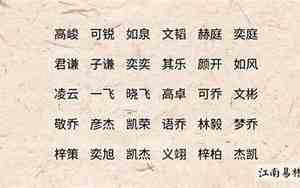 高峻 可锐 如泉 文韬 赫庭 奕庭
君谦 子谦 奕奕 其乐 颜开 如风
凌云 一飞 晓飞 高卓 可乔 文彬
敬乔 彦杰 凯荣 语乔 林毅 梦乔
梓策 奕旭 凯杰 义翊 梓柏 杰凯
江南易